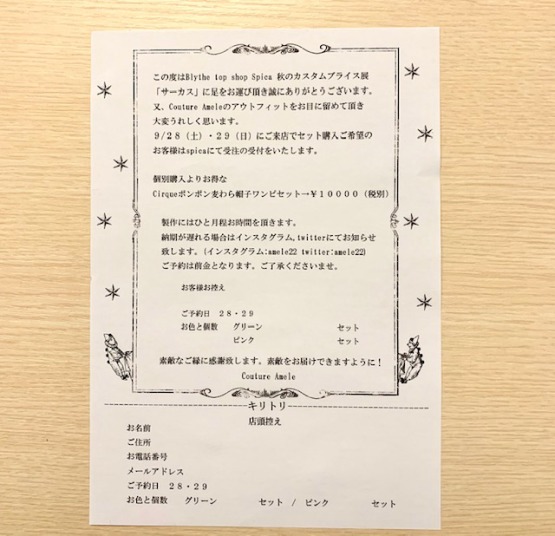 この度はBlythe top shop Spica 秋のカスタムブライス展
「サーカス」に足をお運び頂き誠にありがとうございます。
又、Couture Ameleのアウトフィットをお目に留めて頂き
大変うれしく思います。
９/２８（土）・２９（日）にご来店でセット購入ご希望の
お客様はspicaにて受注の受付をいたします。
個別購入よりお得な
Cirqueポンポン麦わら帽子ワンピセット→￥１００００（税別）
製作にはひと月程お時間を頂きます。
納期が遅れる場合はインスタグラム,twitterにてお知らせ
致します。(インスタグラム:amele22 twitter:amele22)
ご予約は前金となります。ご了承くださいませ。
お客様お控え
ご予約日　２８・２９
お色と個数　グリーン　セット
ピンク　セット
素敵なご縁に感謝致します。素敵をお届けできますように！
Couture Amele
キリトリ
店頭控え
お名前
ご住所
お電話番号
メールアドレス
ご予約日　２８・２９
お色と個数　グリーン　セット　/　ピンク　セット